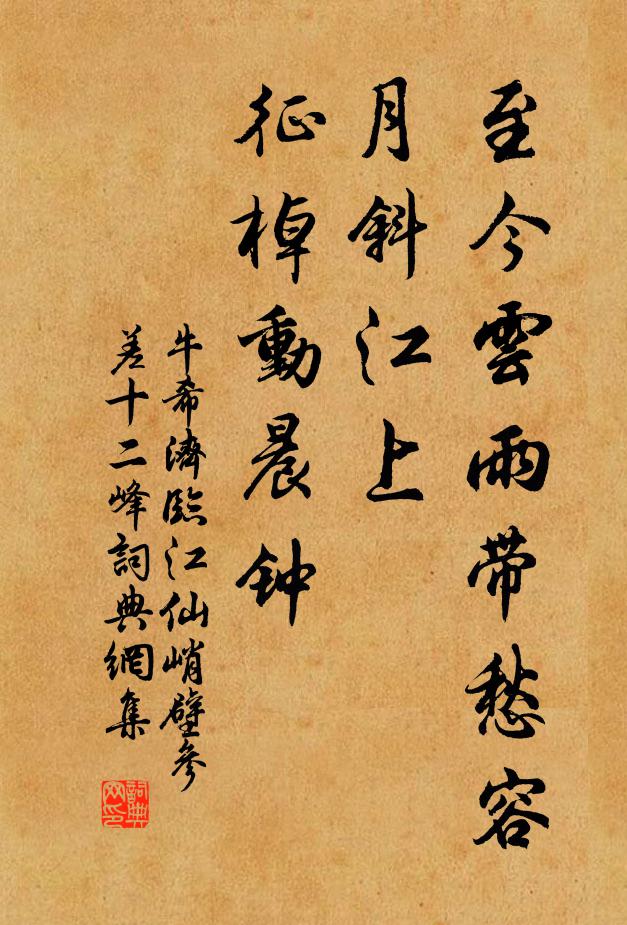 至今雲雨带愁容
月斜江上
征棹動晨钟
牛希濟臨江仙峭壁參
差十二峰詞典網集
詞典网印